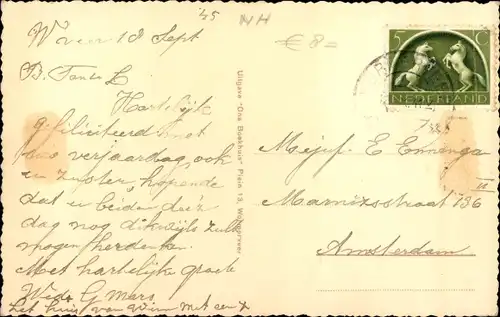 '45 NH
€ 8=
W'veer 18 Sept
B. Tante L
Hartelijk
gefiliciteerd met
uw verjaardag, ook
uw zuster, hopende
dat u beiden dez'n
dag nog dikwijls zult
mogen herdenken.
Met hartelijke groete
Wed. G Mars
het huis van met een x
Uitgave "Ons Boekhuis" Plein 13, Wormerveer
5 C
NEDERLAND
Mejuf. E Enninga
Marnixstraat 136
III
Amsterdam